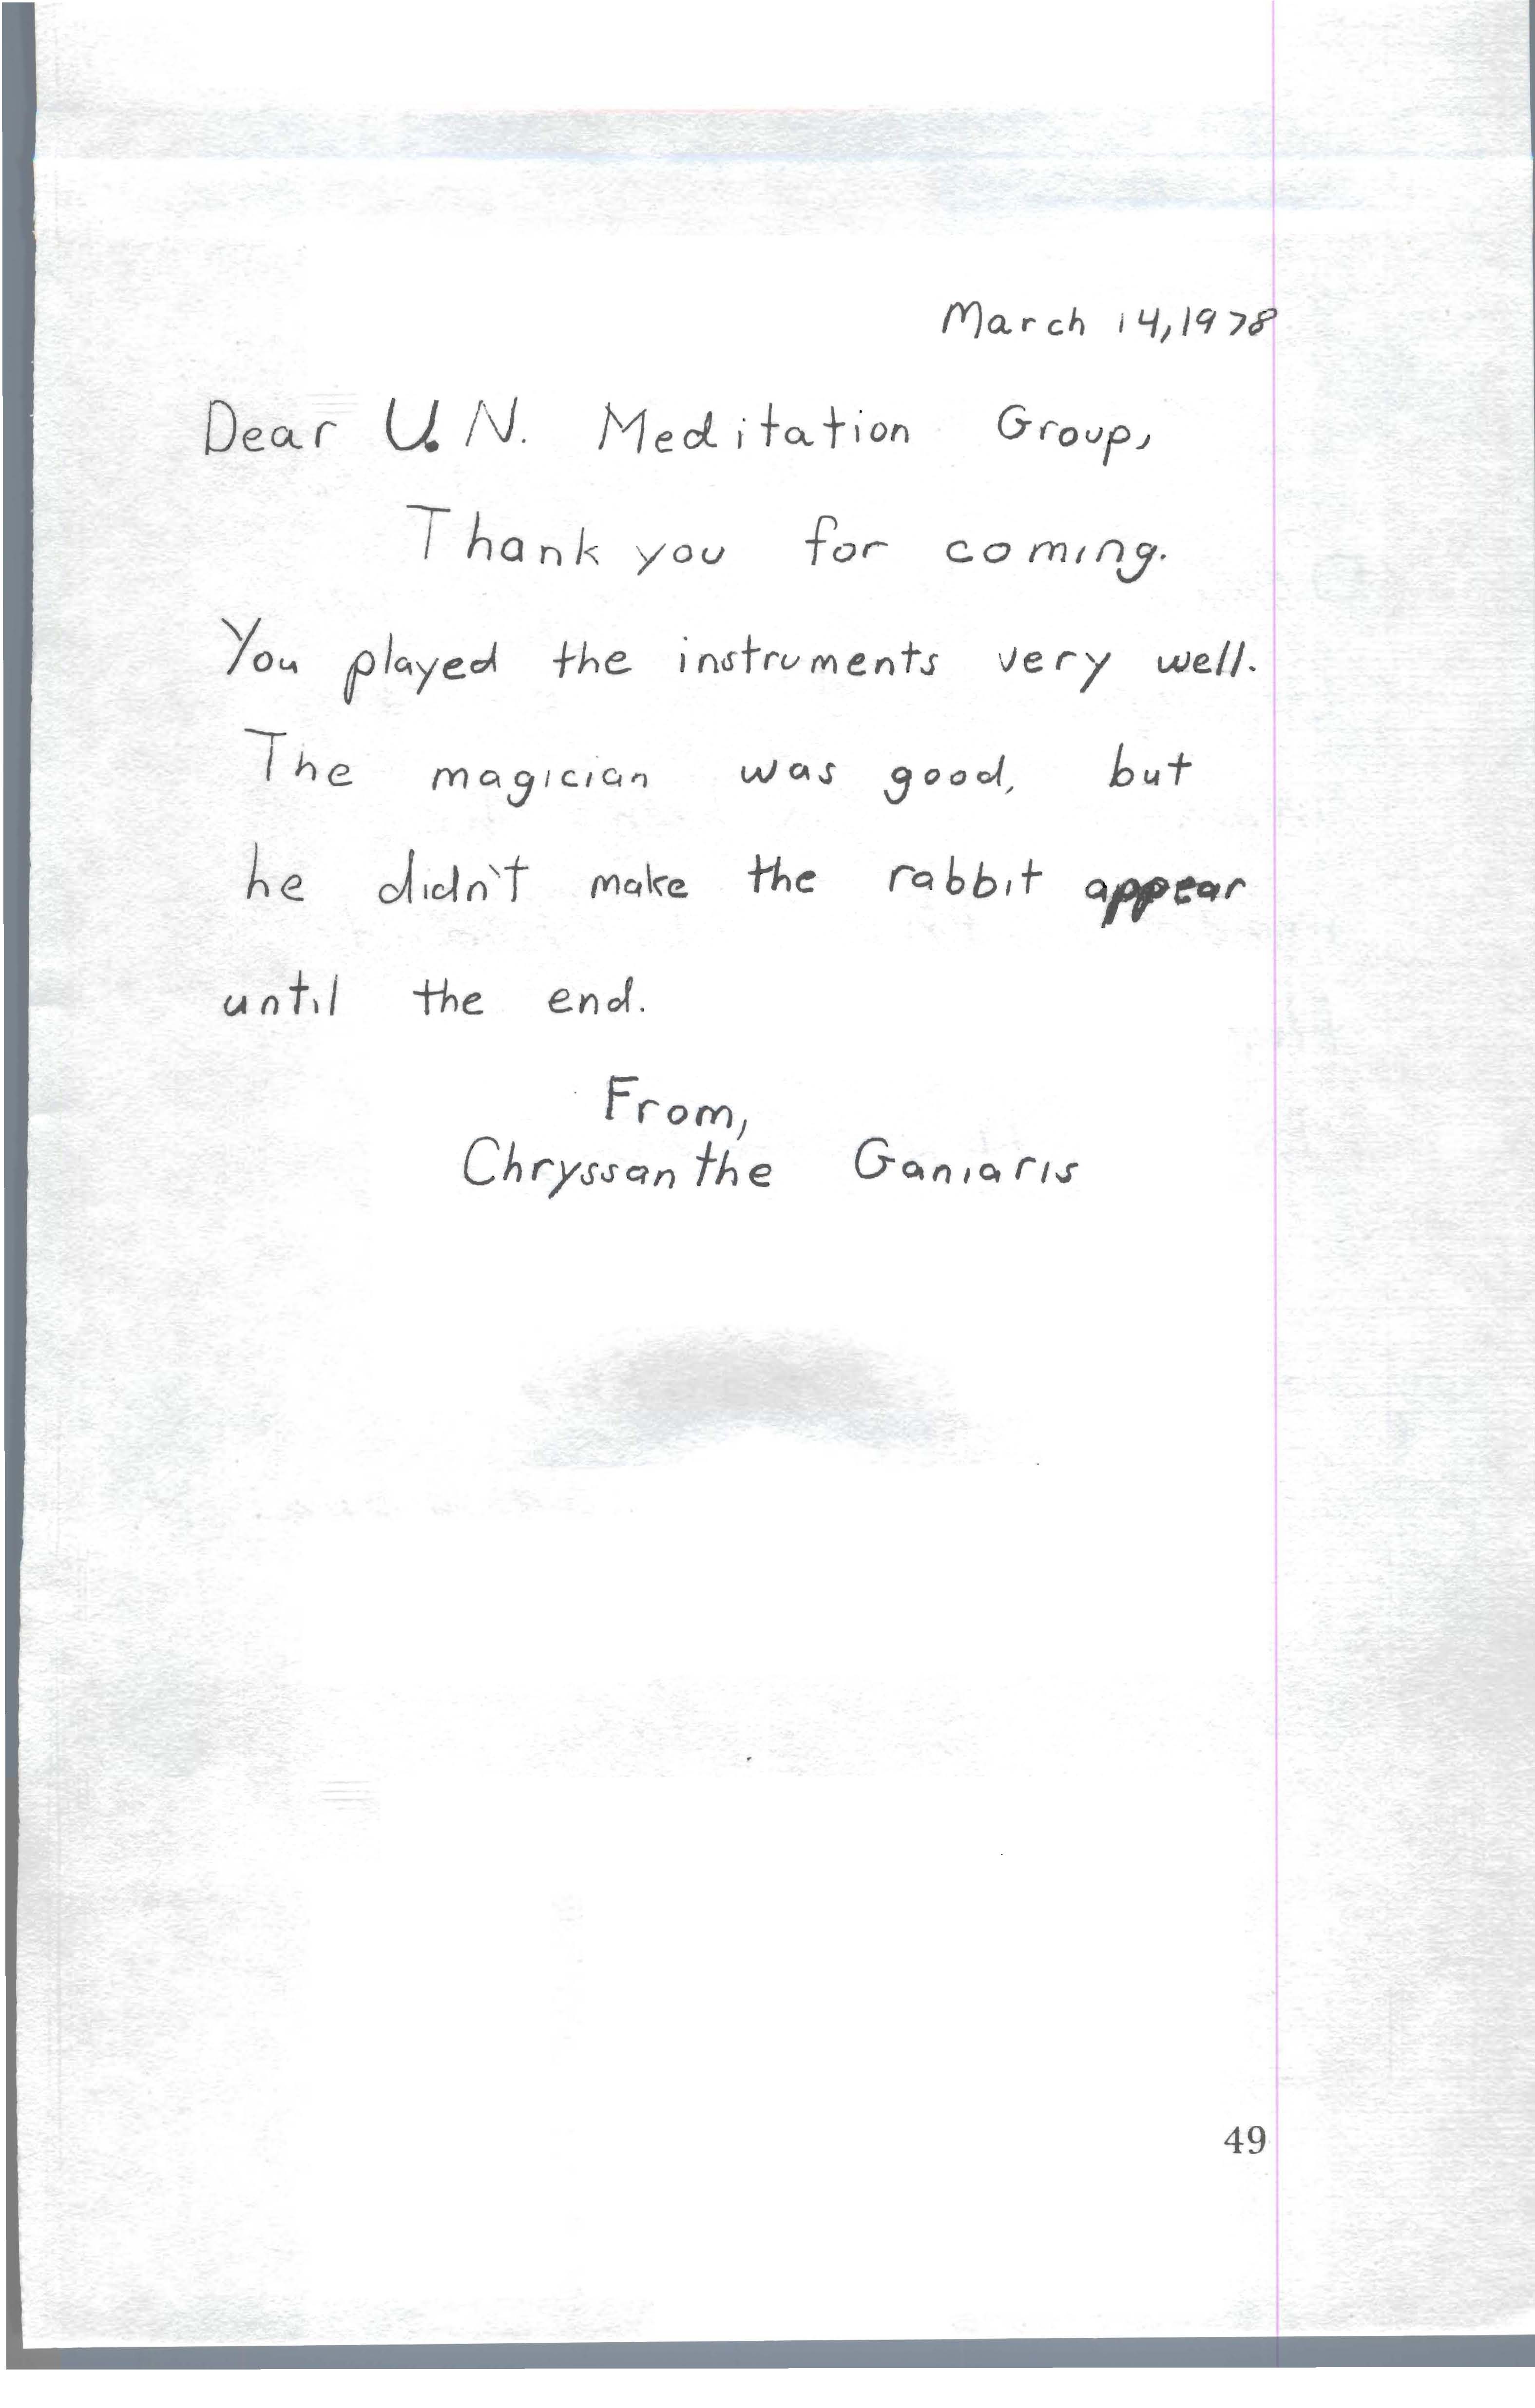 March 14, 1978
Dear U.N. Meditation Group,
Thank you for coming.
You played the instruments very well.
The magician was good, but
he didn't make the rabbit appear
until the end.
From,
Chryssanthe Ganiaris
49